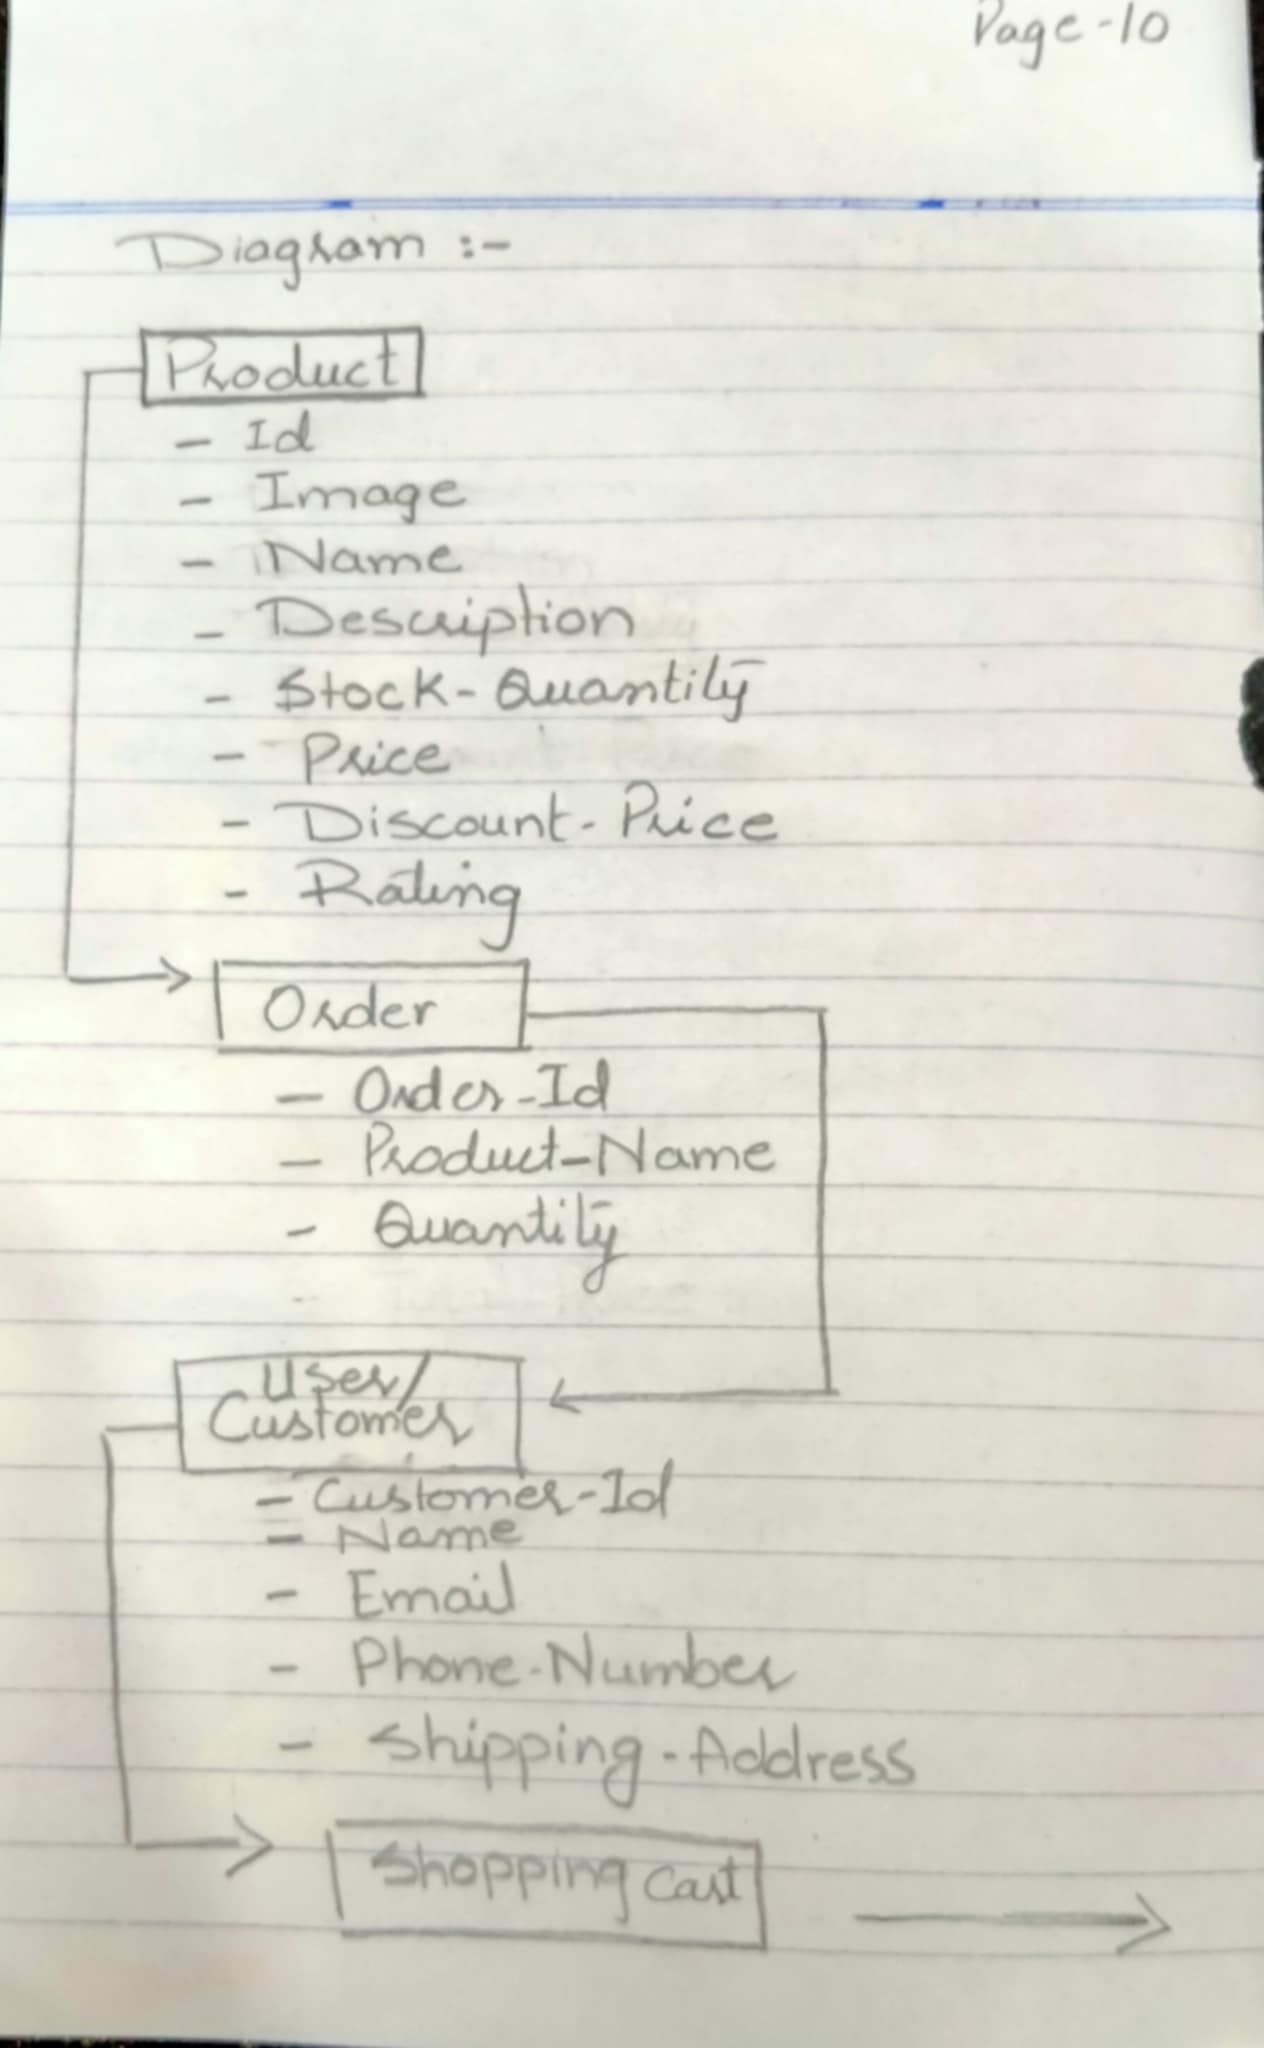 Page-10
Diagram :-
Product
- Id
- Image
- Name
- Description
- Stock-Quantity
- Price
- Discount-Price
- Rating
Order
- Order-Id
- Product-Name
- Quantity
User/
Customer
- Customer-Id
- Name
- Email
- Phone-Number
- Shipping-Address
Shopping Cart